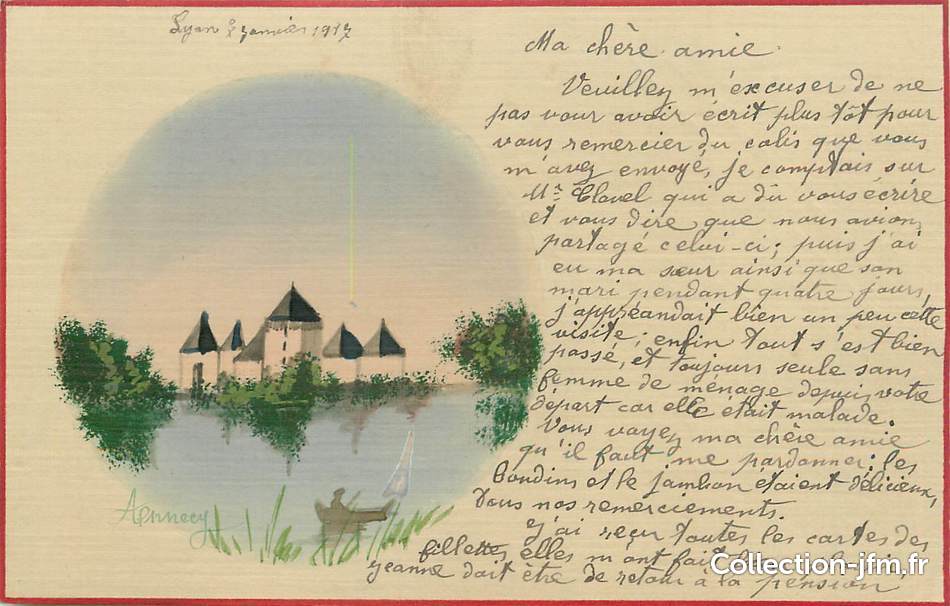 Lyon 2 janvier 1917
Ma chère amie.
Veuillez m'excuser de ne
pas vour avoir écrit plus tôt pour
vous remercier du colis que vous
m'avez envoyé, je comptais sur
Mr Clavel qui a dû vous écrire
et vous dire que nous avions
partagé celui-ci; puis j'ai
eu ma sœur ainsi que son
mari pendant quatre jours,
j'appréandait bien un peu cette
visite; enfin tout s'est bien
passé, et toujours seule sans
femme de ménage depuis votre
départ car elle était malade.
Vous voyez ma chère amie
qu'il faut me pardonner; les
boudins et le jambon étaient délicieux,
tous nos remerciements.
j'ai reçu toutes les cartes des
fillettes, elles m'ont fait
Jeanne doit être de retour à la pension!
Annecy
Collection-jfm.fr